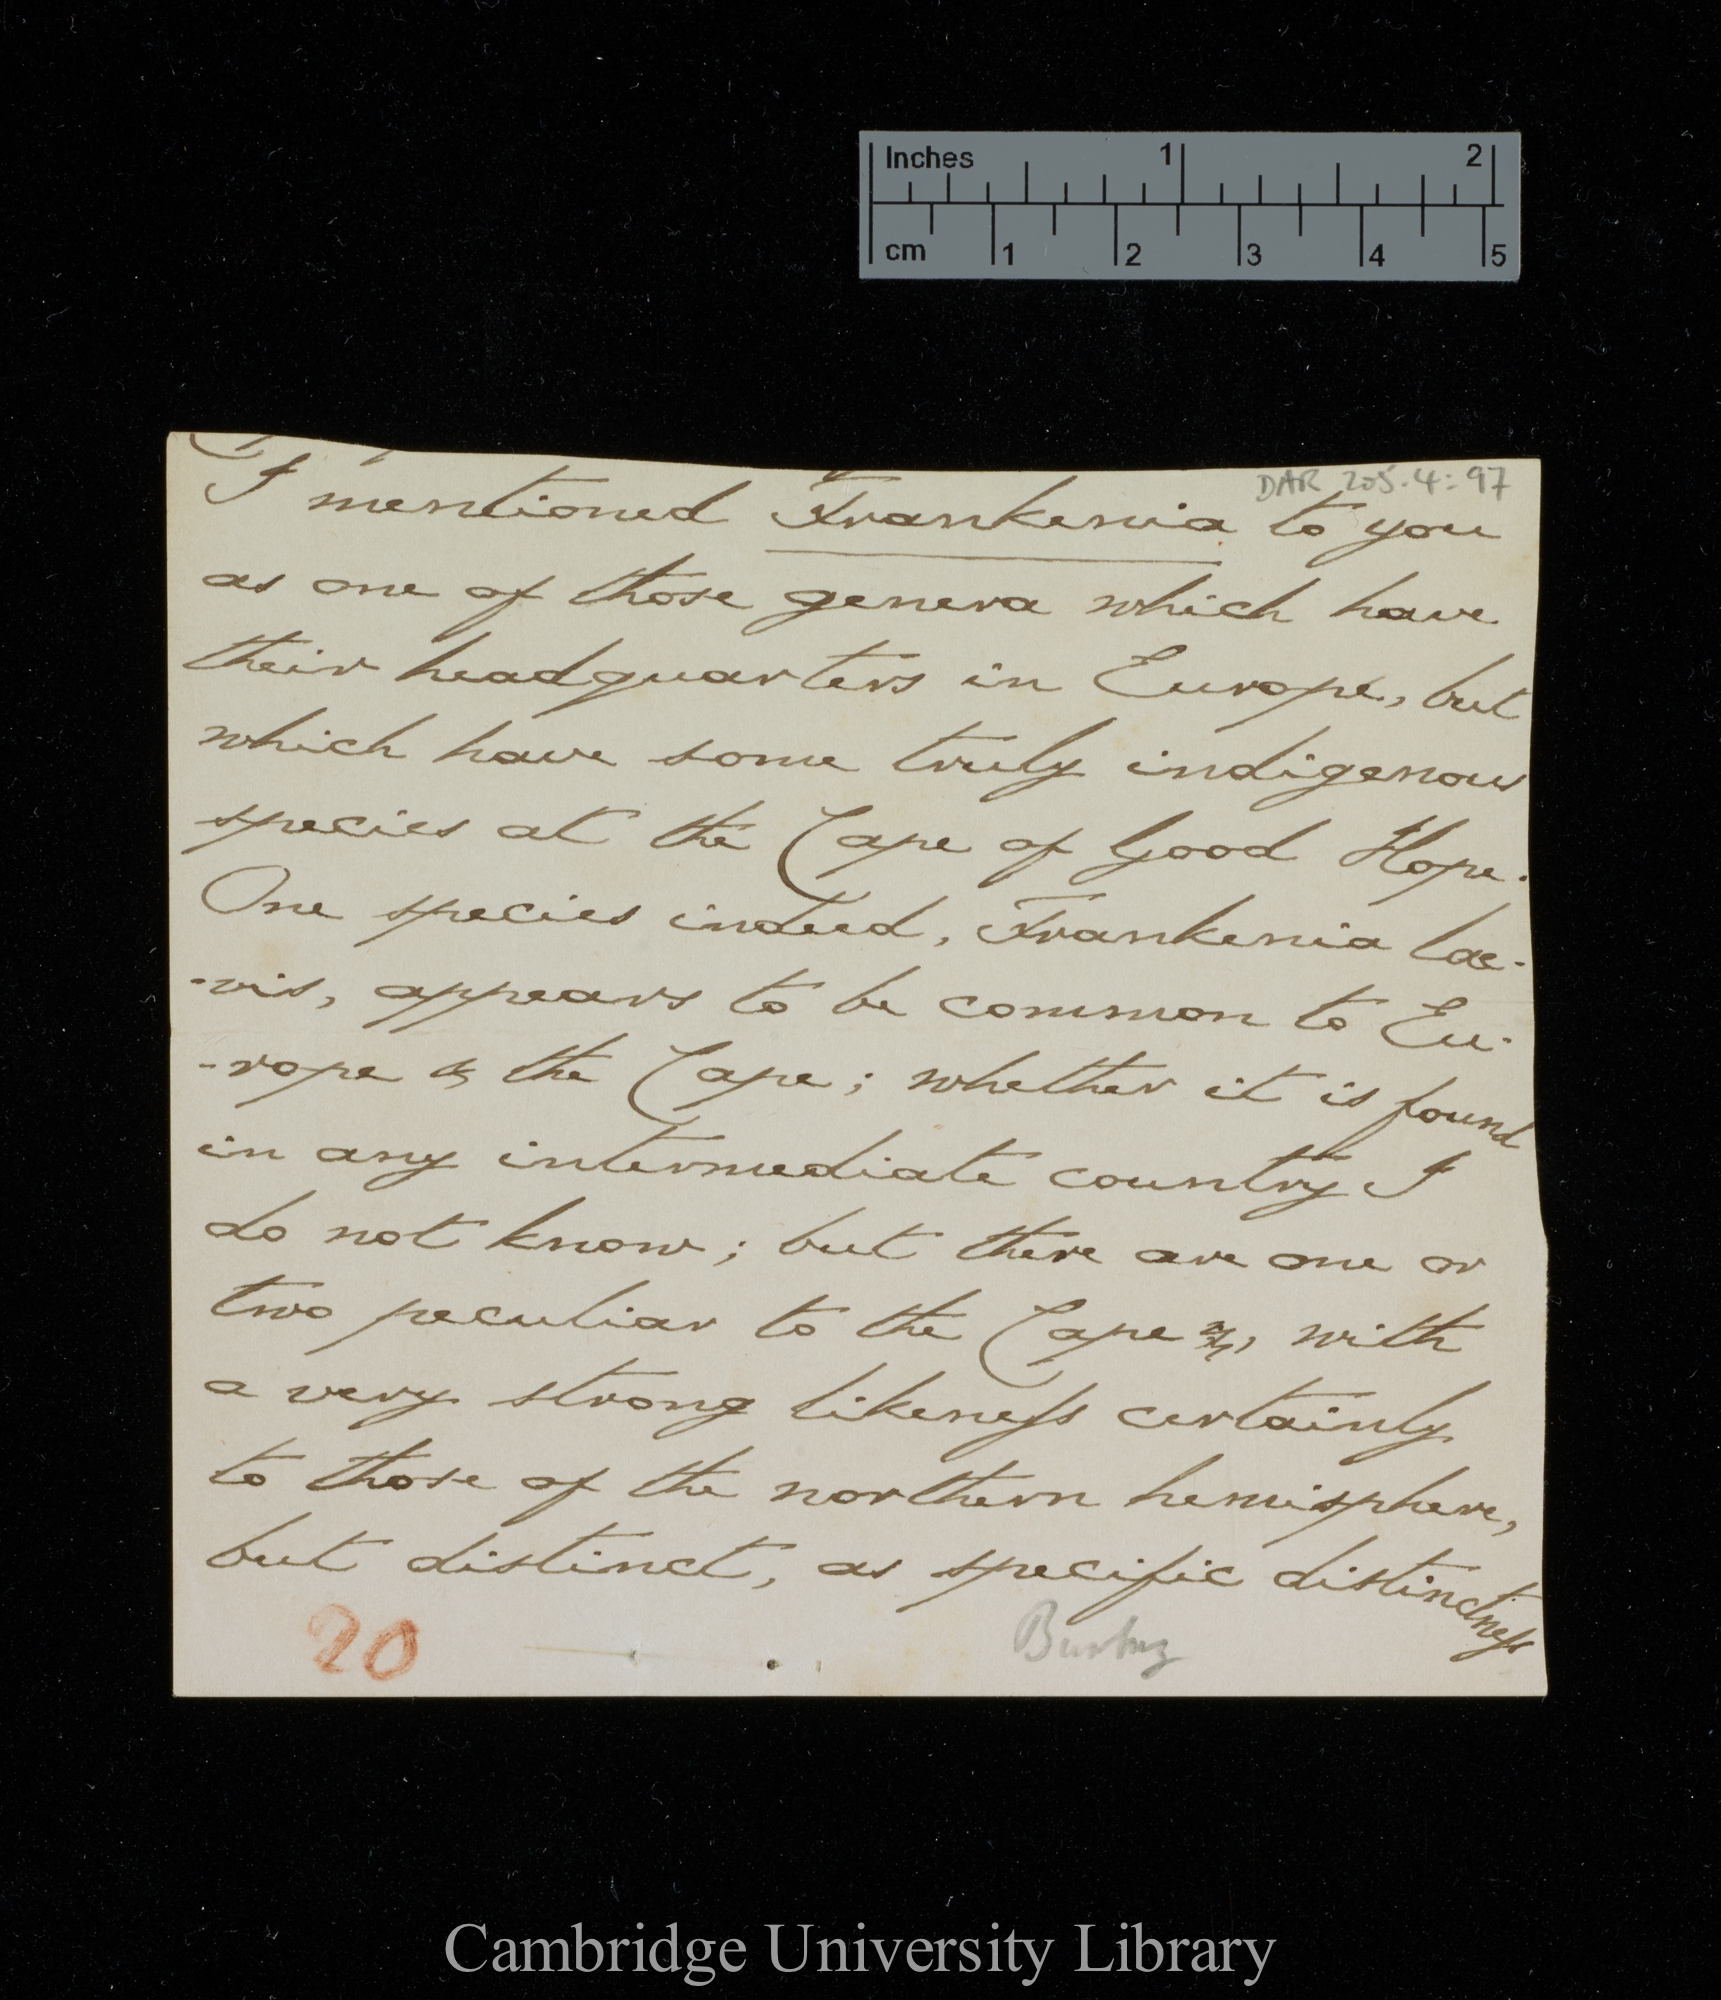 Inches 1 2
cm 1 2 3 4 5
DAR 205.4:97
I mentioned Frankenia to you
as one of those genera which have
their headquarters in Europe, but
which have some truly indigenous
species at the Cape of Good Hope.
One species indeed, Frankenia lae-
-vis, appears to be common to Eu-
-rope & the Cape; whether it is found
in any intermediate country I
do not know; but there are one or
two peculiar to the Cape, with
a very strong likeness certainly
to those of the northern hemisphere,
but distinct, as specific distinctness
20
Bunbury
Cambridge University Library